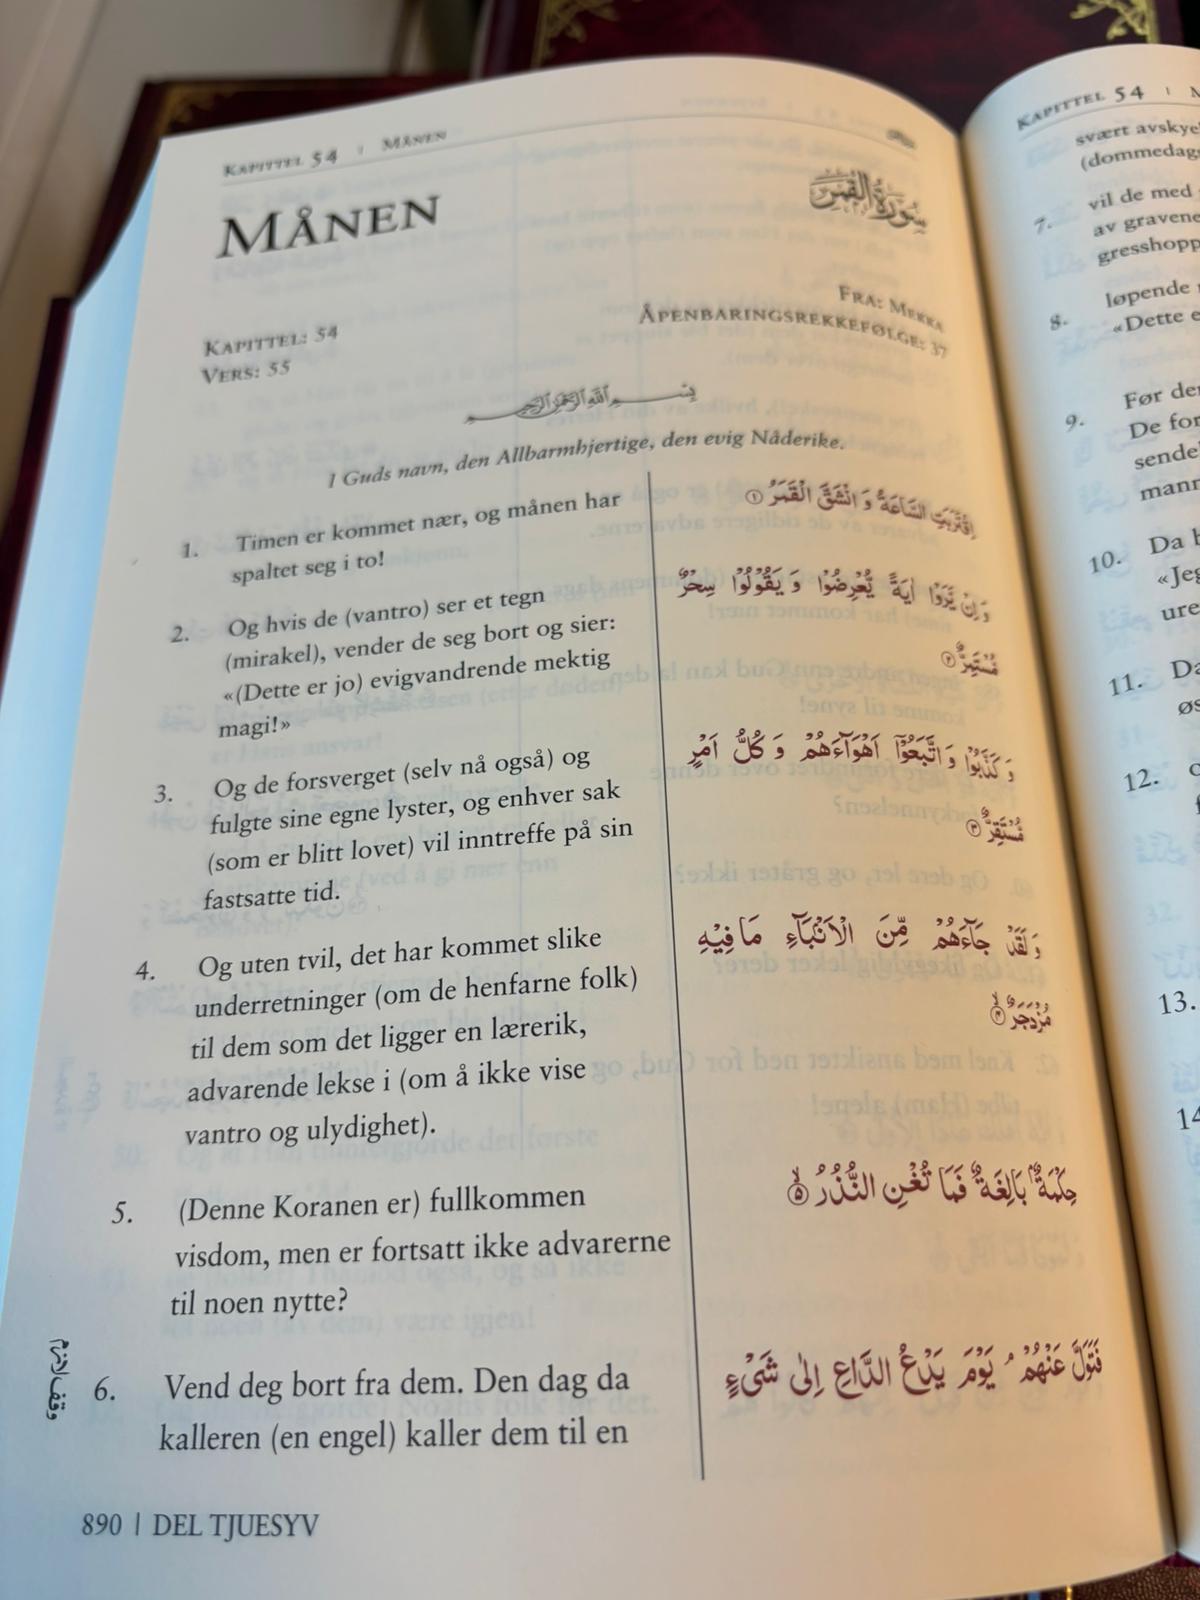 KAPITTEL 54 | MÅNEN
MÅNEN
سُورَةُ الْقَمَرِ
KAPITTEL: 54
VERS: 55
FRA: MEKKA
ÅPENBARINGSREKKEFØLGE: 37
بِسْمِ اللّٰهِ الرَّحْمٰنِ الرَّحِيْمِ
I Guds navn, den Allbarmhjertige, den evig Nåderike.
1. Timen er kommet nær, og månen har
spaltet seg i to!
اِقْتَرَبَتِ السَّاعَةُ وَ انْشَقَّ الْقَمَرُ ۝۱
2. Og hvis de (vantro) ser et tegn
(mirakel), vender de seg bort og sier:
«(Dette er jo) evigvandrende mektig
magi!»
وَ اِنْ يَّرَوْا اٰيَةً يُّعْرِضُوْا وَ يَقُوْلُوْا سِحْرٌ
مُّسْتَمِرٌّ ۝۲
3. Og de forsverget (selv nå også) og
fulgte sine egne lyster, og enhver sak
(som er blitt lovet) vil inntreffe på sin
fastsatte tid.
وَ كَذَّبُوْا وَ اتَّبَعُوْۤا اَهْوَآءَهُمْ وَ كُلُّ اَمْرٍ
مُّسْتَقِرٌّ ۝۳
4. Og uten tvil, det har kommet slike
underretninger (om de henfarne folk)
til dem som det ligger en lærerik,
advarende lekse i (om å ikke vise
vantro og ulydighet).
وَ لَقَدْ جَآءَهُمْ مِّنَ الْاَنْۢبَآءِ مَا فِيْهِ
مُزْدَجَرٌ ۝۴ۙ
5. (Denne Koranen er) fullkommen
visdom, men er fortsatt ikke advarerne
til noen nytte?
حِكْمَةٌۢ بَالِغَةٌ فَمَا تُغْنِ النُّذُرُ ۝۵ۙ
6. Vend deg bort fra dem. Den dag da
kalleren (en engel) kaller dem til en
فَتَوَلَّ عَنْهُمْ ۘ يَوْمَ يَدْعُ الدَّاعِ اِلٰى شَيْءٍ
وقف لازم
890 | DEL TJUESYV
KAPITTEL 54 |
svært
(dommedags
7. vil de med
av gravene
8. løpende
«Dette
9. Før
De
10. Da
«Jeg
11.
12.
13.